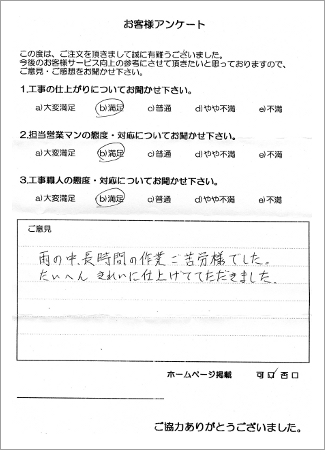 お客様アンケート
この度は、ご注文を頂きまして誠に有難うございました。
今後のお客様サービス向上の参考にさせて頂きたいと思っておりますので、
ご意見・ご感想をお聞かせ下さい。
1.工事の仕上がりについてお聞かせ下さい。
a)大変満足 b)満足 c)普通 d)やや不満 e)不満
2.担当営業マンの態度・対応についてお聞かせ下さい。
a)大変満足 b)満足 c)普通 d)やや不満 e)不満
3.工事職人の態度・対応についてお聞かせ下さい。
a)大変満足 b)満足 c)普通 d)やや不満 e)不満
ご意見
雨の中、長時間の作業ご苦労様でした。
たいへん きれいに仕上げていただきました。
ホームページ掲載 可 否
ご協力ありがとうございました。